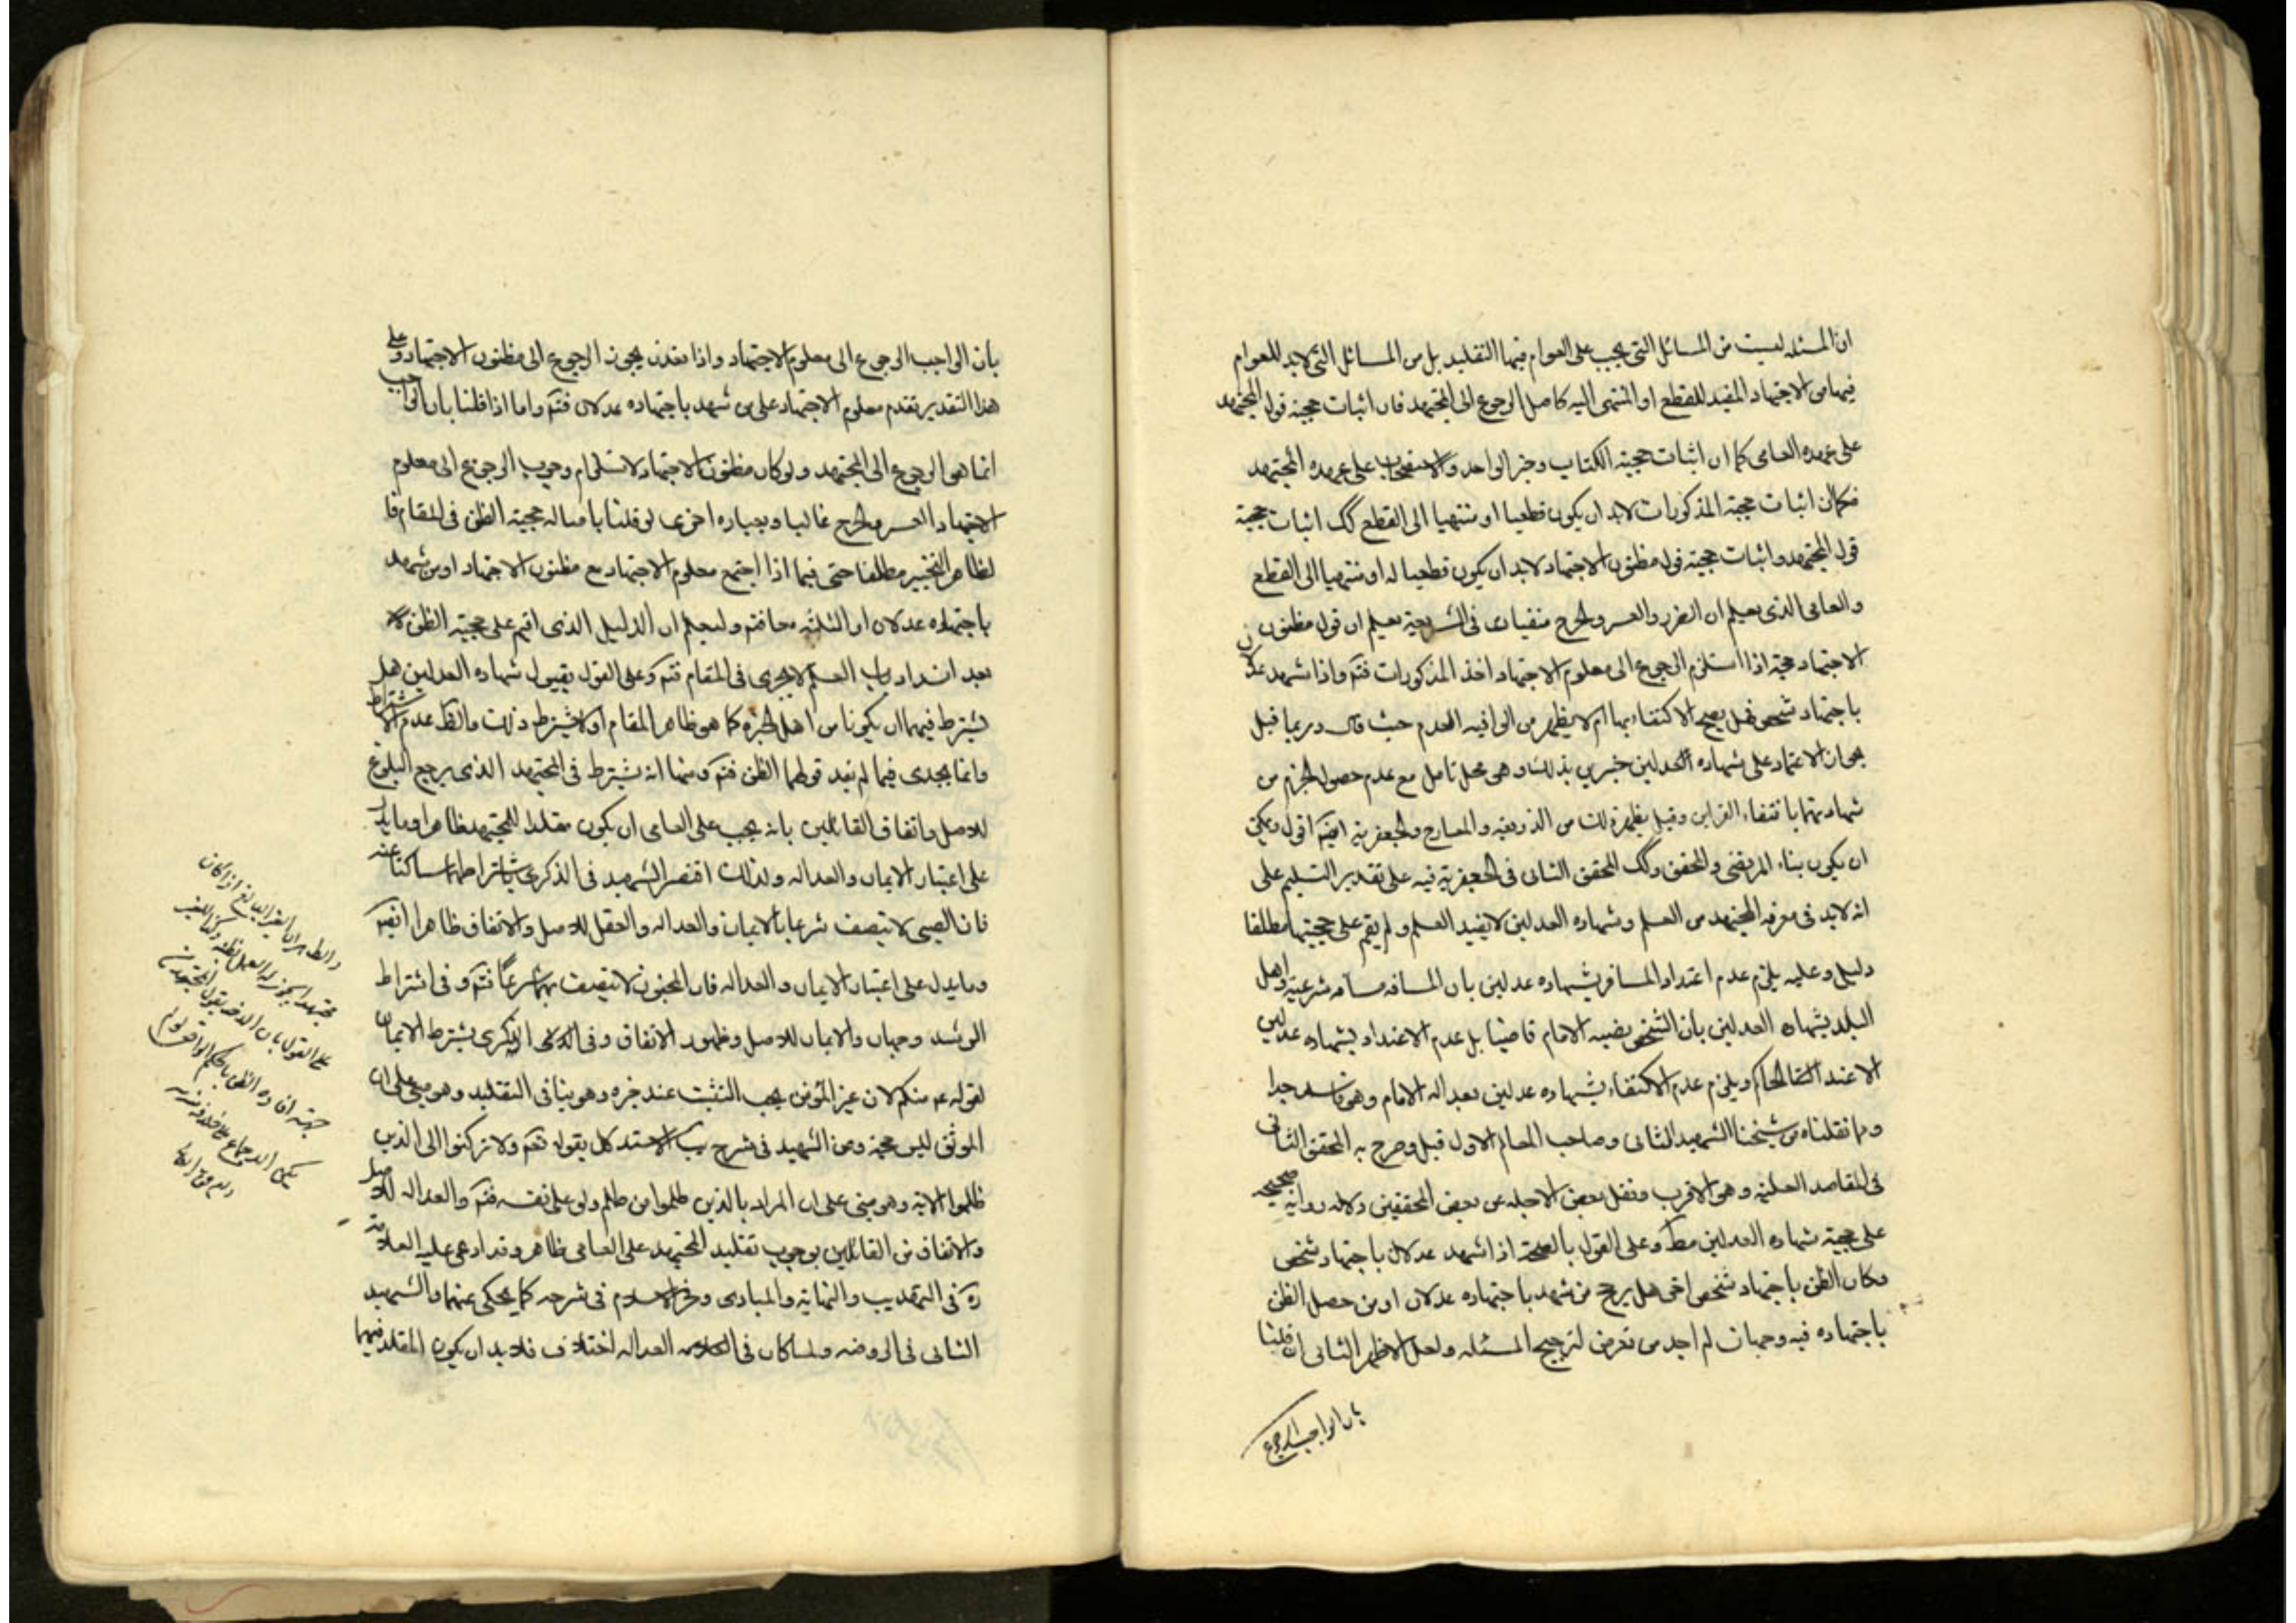 ان المسئله ليست من المسائل التى يجب على العوام فيها التقليد بل من المسائل التى لابد للعوام
فيها من الاجتهاد المفيد للقطع او المنتهى اليه كاصل الرجوع الى المجتهد فان اثبات حجيته قول المجتهد
على عهده العامى كما ان اثبات حجيته الكتاب وخبر الواحد والاستصحاب على عهده المجتهد
فكما ان اثبات حجية المذكورات لابد ان يكون قطعيا او منتهيا الى القطع كك اثبات حجية
قول المجتهد واثبات حجيته قول مظنون الاجتهاد لابد ان يكون قطعيا له او منتهيا الى القطع
والعامى الذى يعلم ان الضرر والعسر والحرج منفيات فى الشريعة يعلم ان قول مظنون
الاجتهاد حجة اذا استلزم الرجوع الى معلوم الاجتهاد احد المذكورات فتم واذا شهد عدلان
باجتهاد شخص فهل يصح الاكتفاء بها ام لا يظهر من الوافيه العدم حيث قال وربما قيل
بجواز الاعتماد على شهاده العدلين خبرين بذلك وهو محل تامل مع عدم حصول الجزم من
شهادتهما بانتفاء القراين وقيل يظهر ذلك من الذريعه والمعارج والجعفرية ايضا اقول ويمكن
ان يكون بناء المرتضى والمحقق وكك المحقق الثانى فى الجعفرية فيه على تقدير التسليم على
انه لابد فى معرفه المجتهد من العلم وشهاده العدلين لا يفيد العلم ولم يقم على حجيتها مطلقا
دليل وعليه يلزم عدم اعتداد المسافر بشهاده عدلين بان المسافه مسافه شرعية واهل
البلد بشهاده العدلين بان الشخص نصبه الامام قاضيا بل عدم الاعتداد بشهاده عدلين
الاعند الحاكم ويلزم عدم الاكتفاء بشهاده عدلين بعداله الامام وهو فاسد جدا
وما نقلناه من شيخنا الشهيد الثانى وصاحب المعالم الاول قيل وصرح به المحقق الثانى
فى المقاصد العلية وهو الاقرب ونقل بعض الاجله عن بعض المحققين دلاله روايه صحيحه
على حجية شهاده العدلين مط وعلى القول بالصحة اذا شهد عدلان باجتهاد شخص
وكان الظن باجتهاد شخص اخر هل يرجح من شهد باجتهاده عدلان او من حصل الظن
باجتهاده فيه وجهان لم اجد من تعرض لترجيح المسئله ولعل الاظهر الثانى ان قلنا
بان الواجب الرجوع
بان الواجب الرجوع الى معلوم الاجتهاد واذا تعذر يجوز الرجوع الى مظنون الاجتهاد وعلى
هذا التقدير تقدم معلوم الاجتهاد على من شهد باجتهاده عدلان فتم واما اذا قلنا بان الواجب
انما هو الرجوع الى المجتهد ولو كان مظنون الاجتهاد لاستلزام وجوب الرجوع الى معلوم
الاجتهاد العسر والحرج غالبا وبعباره اخرى لو قلنا باصاله حجية الظن فى المقام فا
لظاهر التخيير مطلقا حتى فيما اذا اجتمع معلوم الاجتهاد مع مظنون الاجتهاد او من شهد
باجتهاده عدلان او الثلثه معا فتم وليعلم ان الدليل الذى اقيم على حجية الظن
بعد انسداد باب العلم لا يجرى فى المقام فتم وعلى القول بقبول شهاده العدلين هل
يشترط فيهما ان يكونا من اهل الخبره كما هو ظاهر المقام او لا يشترط ذلك والظ عدم الاشتراط
وانما يجدى فيما لم يفد قولهما الظن فتم ومنها انه يشترط فى المجتهد الذى يرجع البلوغ
للاصل واتفاق القائلين بانه يجب على العامى ان يكون مقلدا للمجتهد ظاهرا وما يدل
على اعتبار الايمان والعداله ولذلك اقتصر الشهيد فى الذكرى باشتراطهما ساكتا عنه
فان الصبى لا يتصف شرعا بالايمان والعداله والعقل للاصل والاتفاق ظاهرا ايضا
وما يدل على اعتبار الايمان والعداله فان المجنون لا يتصف بهما شرعا فتم وفى اشتراط
الرشد وجهان والايمان للاصل وظهور الاتفاق وفى الذكرى يشترط الايمان
لقوله ع منكم لان غير المؤمن يجب التثبت عند خبره وهو ينافى التقليد وهو مبنى على ان
الموثق ليس حجة وعن الشهيد فى شرح الاستدلال بقوله تعم ولا تركنوا الى الذين
ظلموا الاية وهو مبنى على ان المراد بالذين ظلموا من ظلم ولو على نفسه فتم والعداله للاصل
والاتفاق من القائلين بوجوب تقليد المجتهد على العامى ظاهر وقد ادعى عليه العلامة
ره فى التهذيب والنهاية والمبادى وفخر الاسلام فى شرحه كما يحكى عنهما والشهيد
الثانى فى الروضه ولما كان فى العداله اختلاف فلابد ان يكون المقلد فيها